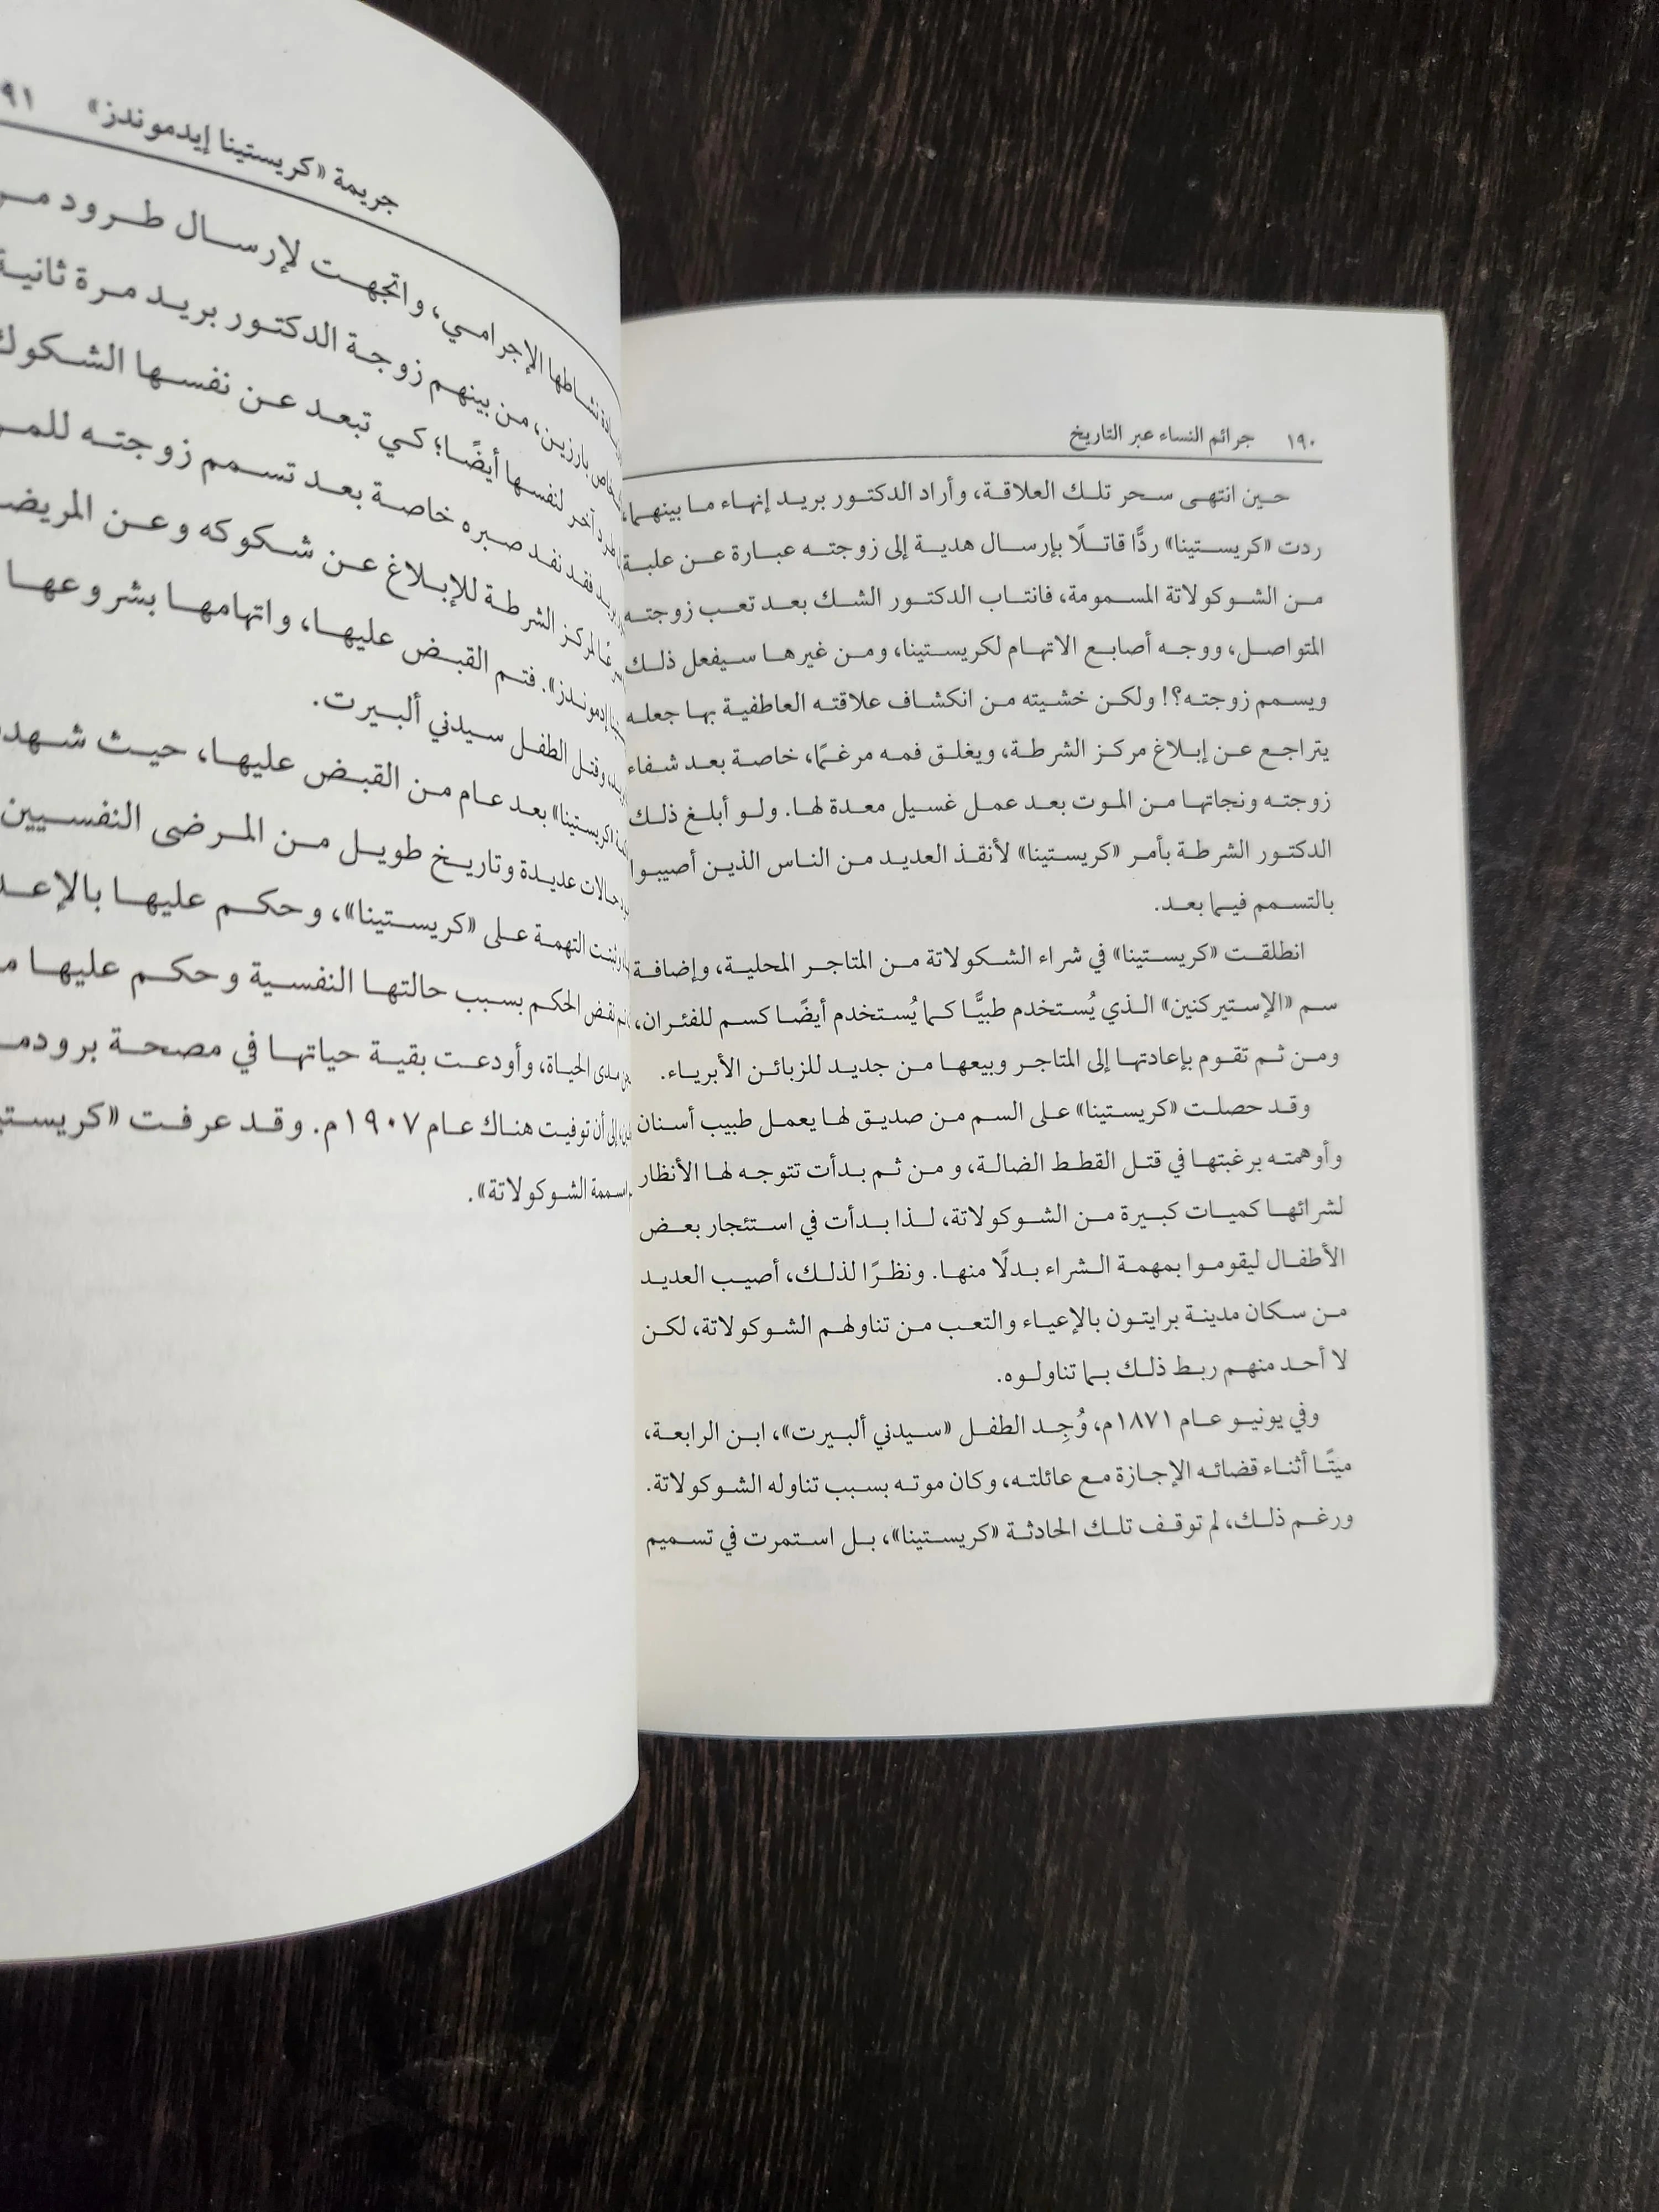 ١٩٠ جرائم النساء عبر التاريخ
حين انتهى سحر تلك العلاقة، وأراد الدكتور بريد إنهاء ما بينهما،
ردت «كريستينا» ردًّا قاتلًا بإرسال هدية إلى زوجته عبارة عن علبة
من الشوكولاتة المسمومة، فانتاب الدكتور الشك بعد تعب زوجته
المتواصل، ووجه أصابع الاتهام لكريستينا، ومن غيرها سيفعل ذلك
ويسمم زوجته؟! ولكن خشيته من انكشاف علاقته العاطفية بها جعله
يتراجع عن إبلاغ مركز الشرطة، ويغلق فمه مرغمًا، خاصة بعد شفاء
زوجته ونجاتها من الموت بعد عمل غسيل معدة لها. ولو أبلغ ذلك
الدكتور الشرطة بأمر «كريستينا» لأنقذ العديد من الناس الذين أصيبوا
بالتسمم فيما بعد.
انطلقت «كريستينا» في شراء الشكولاتة من المتاجر المحلية، وإضافة
سم «الإستيركنين» الذي يُستخدم طبيًّا كما يُستخدم أيضًا كسم للفئران،
ومن ثم تقوم بإعادتها إلى المتاجر وبيعها من جديد للزبائن الأبرياء.
وقد حصلت «كريستينا» على السم من صديق لها يعمل طبيب أسنان
وأوهمته برغبتها في قتل القطط الضالة، ومن ثم بدأت تتوجه لها الأنظار
لشرائها كميات كبيرة من الشوكولاتة، لذا بدأت في استئجار بعض
الأطفال ليقوموا بمهمة الشراء بدلًا منها. ونظرًا لذلك، أصيب العديد
من سكان مدينة برايتون بالإعياء والتعب من تناولهم الشوكولاتة، لكن
لا أحد منهم ربط ذلك بما تناولوه.
وفي يونيو عام ١٨٧١م، وُجِد الطفل «سيدني ألبيرت»، ابن الرابعة،
ميتًا أثناء قضائه الإجازة مع عائلته، وكان موته بسبب تناوله الشوكولاتة.
ورغم ذلك، لم توقف تلك الحادثة «كريستينا»، بل استمرت في تسميم
جريمة «كريستينا إيدموندز» ٩١
نشاطها الإجرامي، واتجهت لإرسال طرود
بارزين، من بينهم زوجة الدكتور بريد مرة ثانية
آخر لنفسها أيضًا؛ كي تبعد عن نفسها الشكوك
فقد نفد صبره خاصة بعد تسمم زوجته
لمركز الشرطة للإبلاغ عن شكوكه وعن
إدموندز». فتم القبض عليها، واتهامها بشروعها
وقتل الطفل سيدني ألبيرت.
«كريستينا» بعد عام من القبض عليها، حيث
حالات عديدة وتاريخ طويل من المرضى النفسيين
وثبتت التهمة على «كريستينا»، وحكم عليها
نقض الحكم بسبب حالتها النفسية وحكم عليها
مدى الحياة، وأودعت بقية حياتها في مصحة
إلى أن توفيت هناك عام ١٩٠٧م. وقد عرفت
الشوكولاتة».